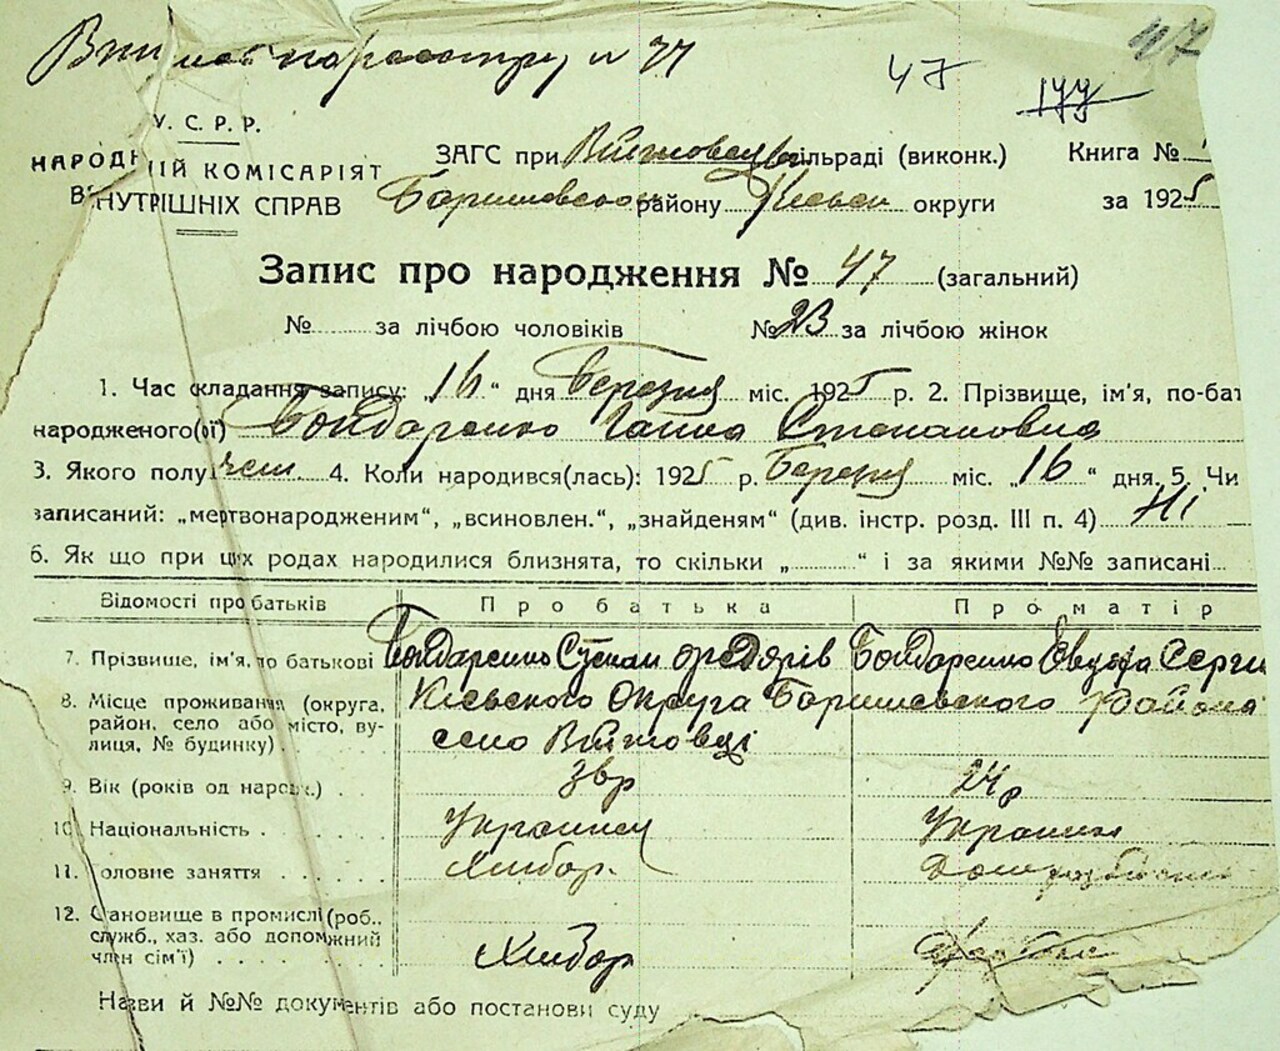 47
по реєстру н 77
47 177
У.С.Р.Р.
НАРОДНІЙ КОМІСАРІЯТ
ВНУТРІШНІХ СПРАВ
ЗАГС при Війтовец сільраді (виконк.) Книга №
Баришевсько району Київськ округи за 1925
Запис про народження № 47 (загальний)
№ за лічбою чоловіків № 23 за лічбою жінок
1. Час складання запису: „16“ дня Березня міс. 1925 р. 2. Прізвище, ім'я, по-бат
народженого(ої) Бондаренко Ганна Степановна
3. Якого полу жен. 4. Коли народився(лась): 1925 р. Березня міс. „16“ дня. 5. Чи
записаний: „мертвонародженим“, „всиновлен.“, „знайденям“ (див. інстр. розд. III п. 4) Ні
6. Як що при цих родах народилися близнята, то скільки „ “ і за якими №№ записані
Відомості про батьків Про батька Про матір
7. Прізвище, ім'я, по батькові Бондаренко Степан Бондаренко Серги
8. Місце проживання (округа, Київського Округа Баришевского Района
район, село або місто, ву-
лиця, № будинку) село Війтовці
9. Вік (років од народж.) 24 р
10. Національність Украинец Украинк
11. Головне заняття Хлибор.
12. Становище в промислі (роб.,
служб., хаз. або допомжний
член сім'ї) Хлибор
Назви й №№ документів або постанови суду